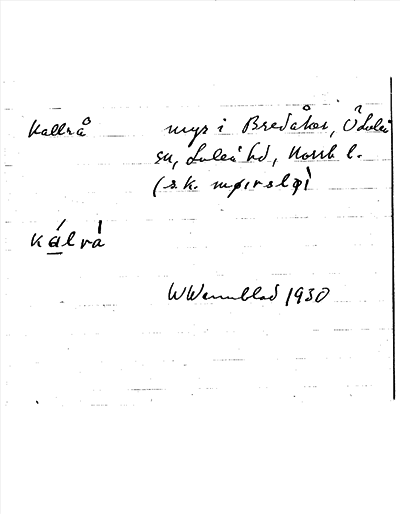 Kallrå myr i Bredåker, Ö Luleå
sn, Luleå hd, Norrb l.
(s.k. mørslø̀)
kálrå̀
WWennblad 1930